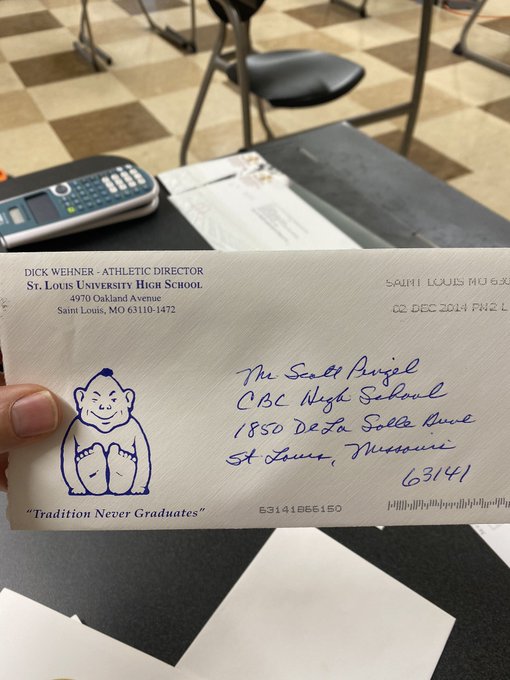 DICK WEHNER - ATHLETIC DIRECTOR
ST. LOUIS UNIVERSITY HIGH SCHOOL
4970 Oakland Avenue
Saint Louis, MO 63110-1472
SAINT LOUIS MO 630
02 DEC 2014 PM 2 L
Mr Scott Pingel
CBC High School
1850 De La Salle Drive
St Louis, Missouri
63141
"Tradition Never Graduates"
63141866150